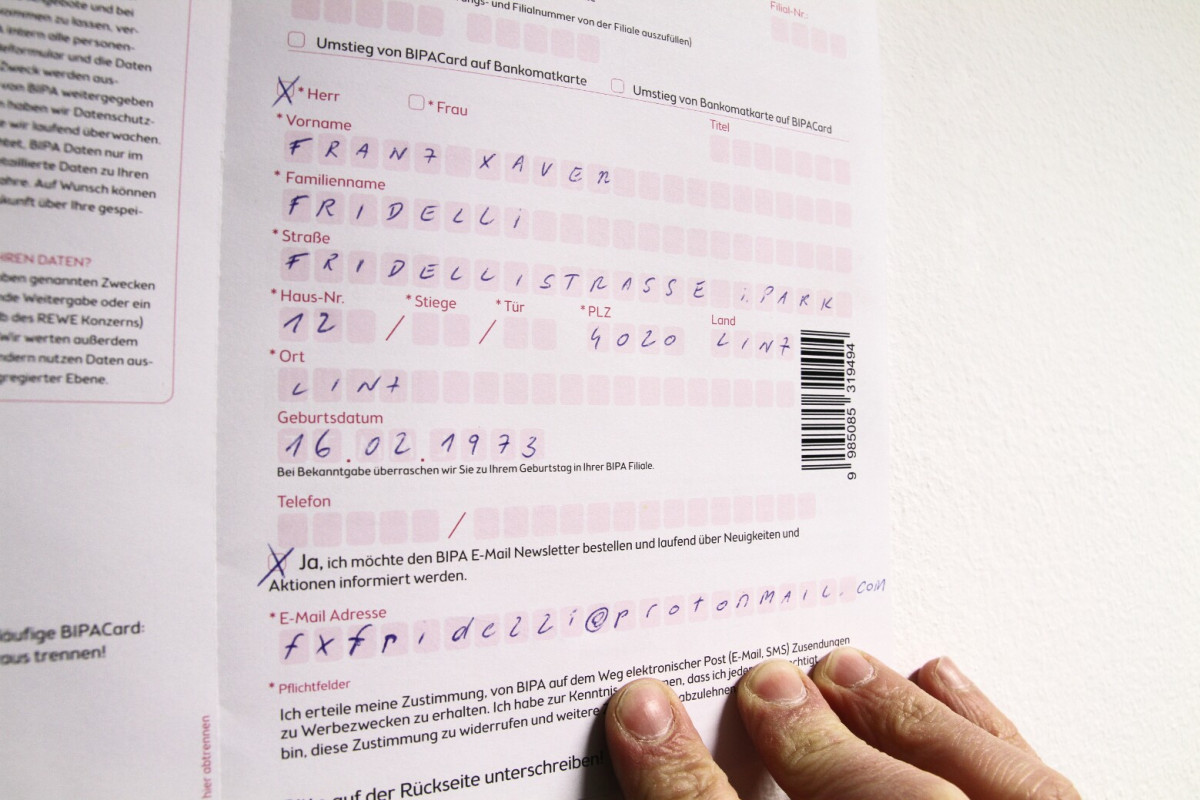 ngebote und bei
kommen zu lassen, ver-
intern alle personen-
formular und die Daten
Zweck werden aus-
von BIPA weitergegeben
haben wir Datenschutz-
wir laufend überwachen.
BIPA Daten nur im
detaillierte Daten zu Ihren
Jahre. Auf Wunsch können
kunft über Ihre gespei-
HREN DATEN?
ben genannten Zwecken
nde Weitergabe oder ein
b des REWE Konzerns)
Wir werten außerdem
ndern nutzen Daten aus-
gregierter Ebene.
äufige BIPACard:
aus trennen!
hier abtrennen
gs- und Filialnummer von der Filiale auszufüllen)
Filial-Nr.:
Umstieg von BIPACard auf Bankomatkarte
Umstieg von Bankomatkarte auf BIPACard
X * Herr
* Frau
* Vorname
Titel
FRANZ XAVER
* Familienname
FRIDELLi
* Straße
FRIDELLISTRASSE i.PARK
* Haus-Nr. * Stiege * Tür * PLZ Land
12 / / 4020 LINZ
* Ort
LINZ
Geburtsdatum
16.02.1973
Bei Bekanntgabe überraschen wir Sie zu Ihrem Geburtstag in Ihrer BIPA Filiale.
9 985085 319494
Telefon
/
X Ja, ich möchte den BIPA E-Mail Newsletter bestellen und laufend über Neuigkeiten und
Aktionen informiert werden.
* E-Mail Adresse
fxfridelli@protonmail.com
* Pflichtfelder
Ich erteile meine Zustimmung, von BIPA auf dem Weg elektronischer Post (E-Mail, SMS) Zusendungen
zu Werbezwecken zu erhalten. Ich habe zur Kenntnis men, dass ich jeder chtigt
bin, diese Zustimmung zu widerrufen und weitere abzulehnen
auf der Rückseite unterschreiben!